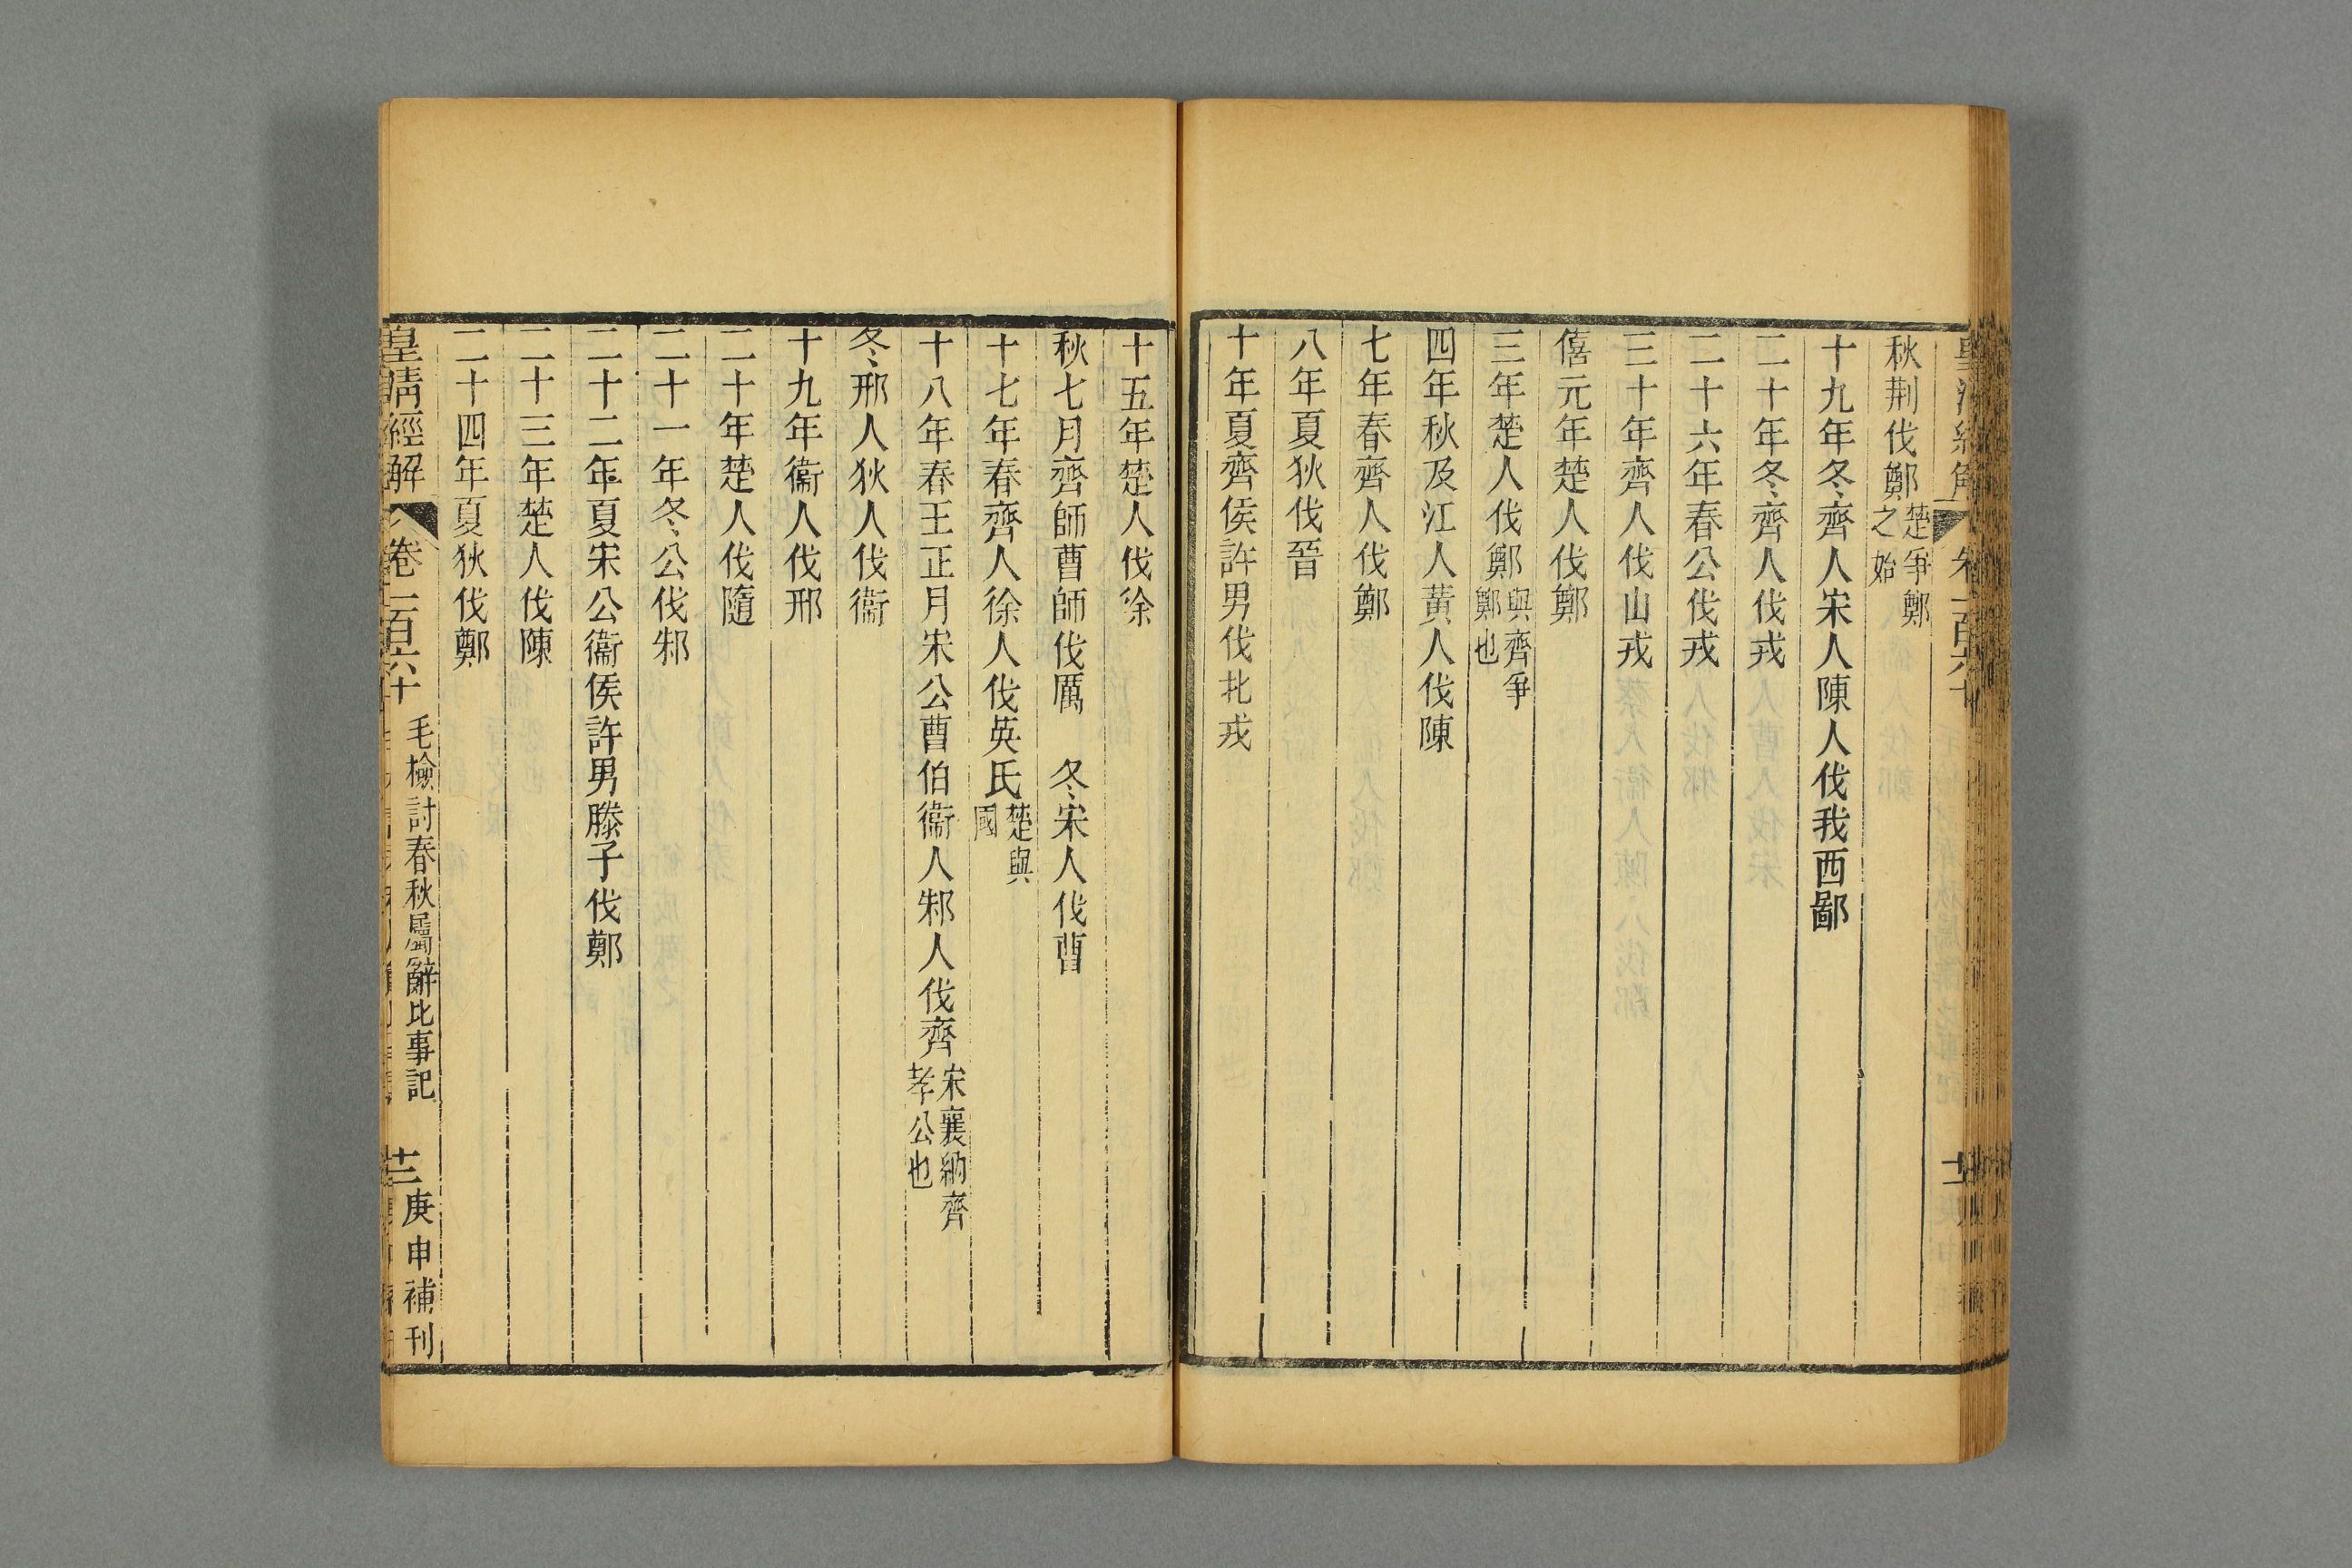 皇清經解 卷一百六十
秋荆伐鄭楚爭鄭之始
十九年冬齊人宋人陳人伐我西鄙
二十年冬齊人伐戎
二十六年春公伐戎
三十年齊人伐山戎
僖元年楚人伐鄭
三年楚人伐鄭與齊爭鄭也
四年秋及江人黃人伐陳
七年春齊人伐鄭
八年夏狄伐晉
十年夏齊侯許男伐北戎
十五年楚人伐徐
秋七月齊師曹師伐厲 冬宋人伐曹
十七年春齊人徐人伐英氏楚與國
十八年春王正月宋公曹伯衞人邾人伐齊宋襄納齊孝公也
冬邢人狄人伐衞
十九年衞人伐邢
二十年楚人伐隨
二十一年冬公伐邾
二十二年夏宋公衞侯許男滕子伐鄭
二十三年楚人伐陳
二十四年夏狄伐鄭
皇清經解 卷一百六十 毛檢討春秋屬辭比事記 庚申補刊